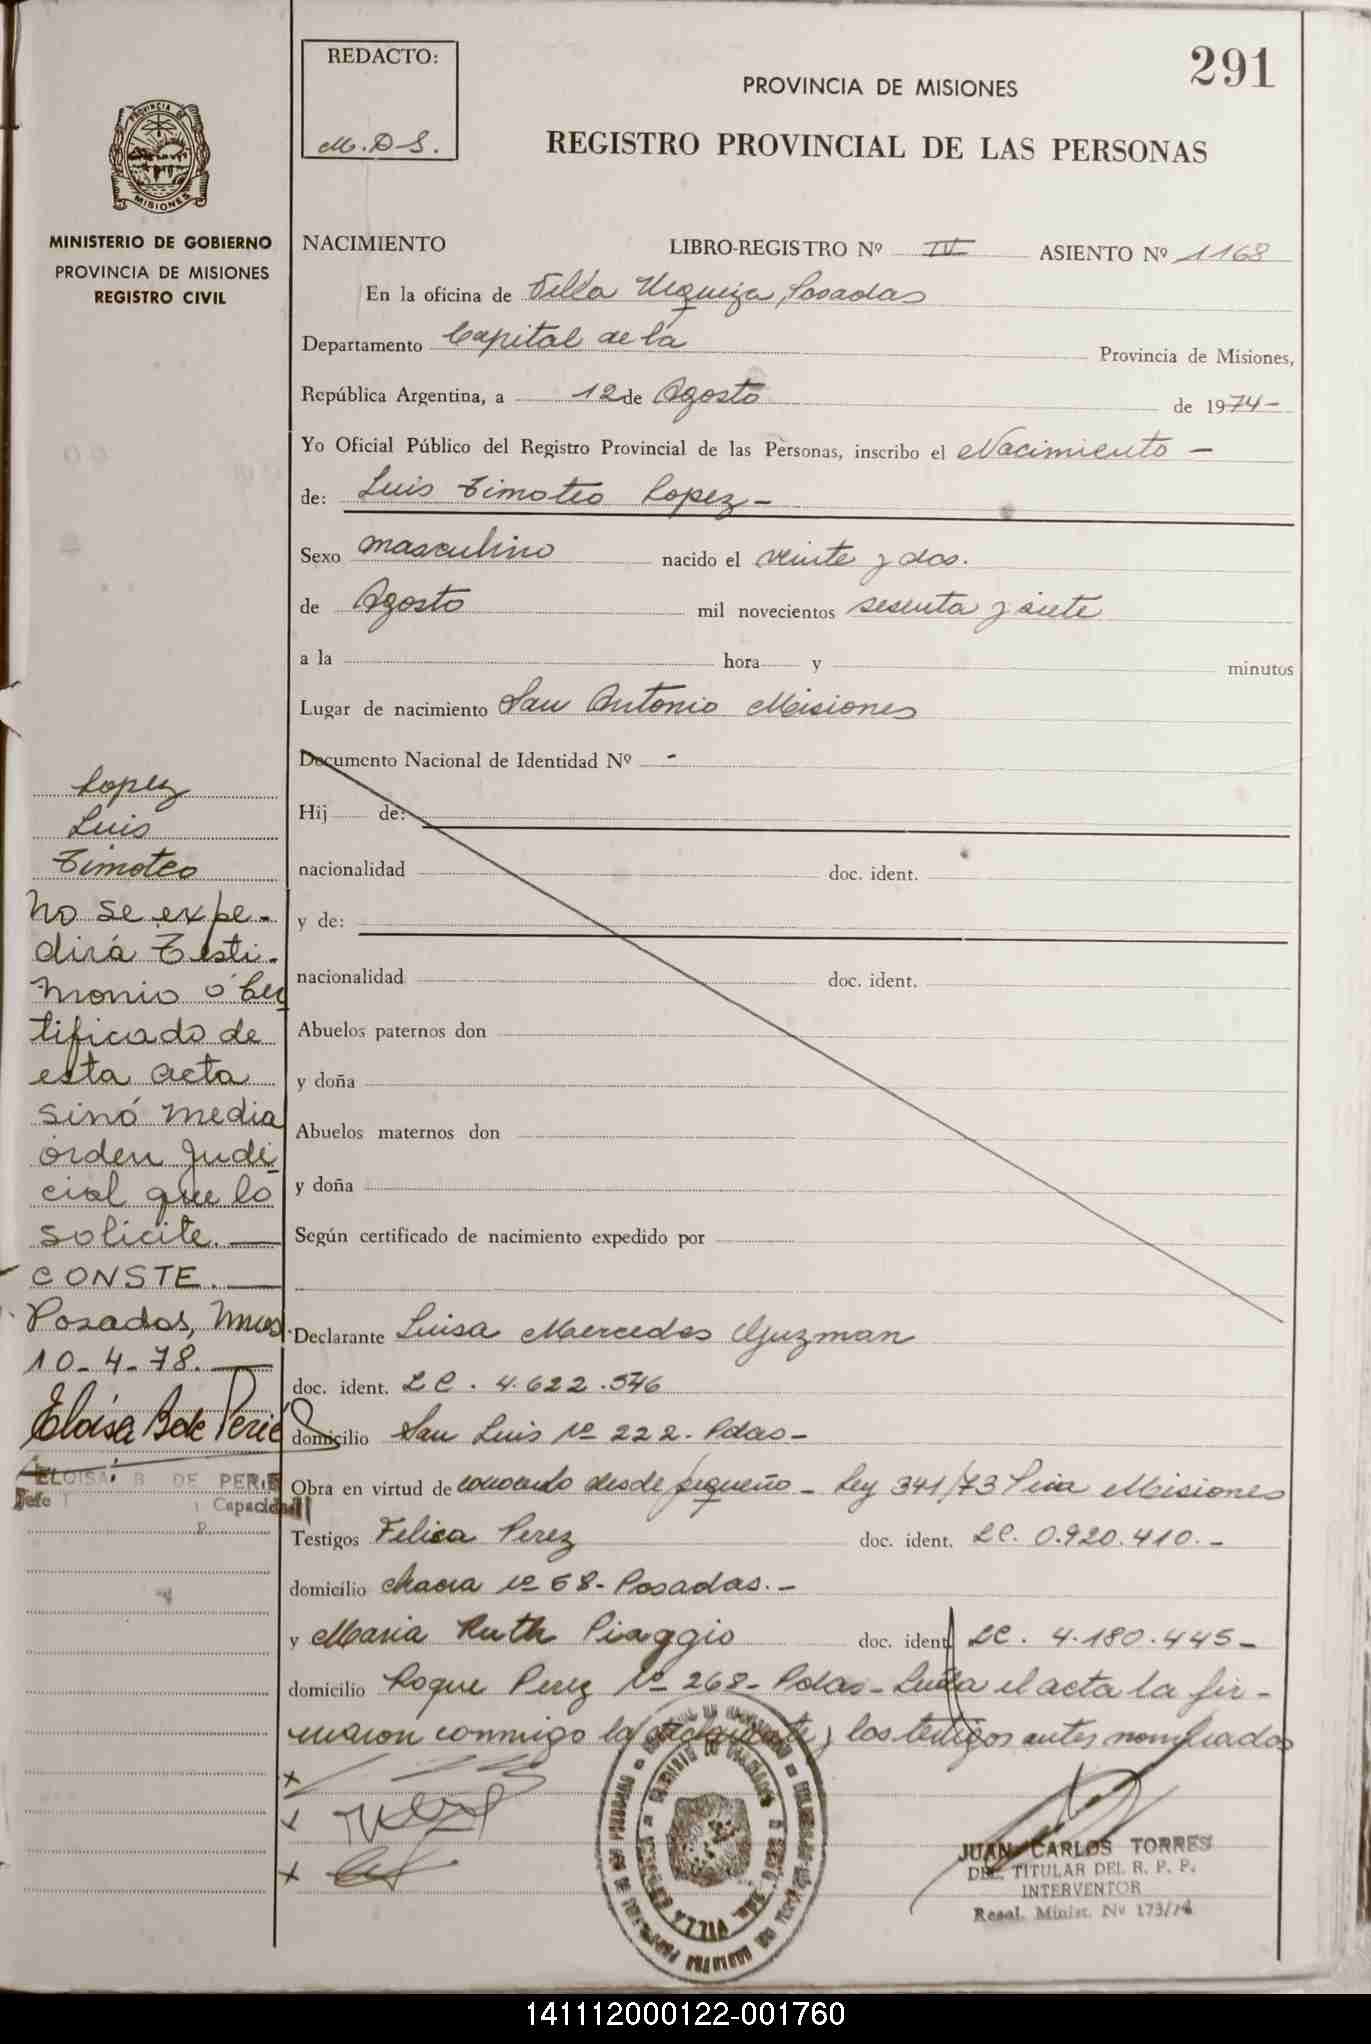 REDACTO:
M.D.S.
291
PROVINCIA DE MISIONES
REGISTRO PROVINCIAL DE LAS PERSONAS
PROVINCIA DE
MISIONES
MINISTERIO DE GOBIERNO
PROVINCIA DE MISIONES
REGISTRO CIVIL
NACIMIENTO LIBRO-REGISTRO Nº IV ASIENTO Nº 1168
En la oficina de Villa Urquiza, Posadas
Departamento Capital de la Provincia de Misiones,
República Argentina, a 12 de Agosto de 1974-
Yo Oficial Público del Registro Provincial de las Personas, inscribo el Nacimiento -
de: Luis Timoteo Lopez -
Sexo masculino nacido el veinte y dos.
de Agosto mil novecientos sesenta y siete
a la hora y minutos
Lugar de nacimiento San Antonio Misiones
Documento Nacional de Identidad Nº -
Hij de:
nacionalidad doc. ident.
y de:
nacionalidad doc. ident.
Abuelos paternos don
y doña
Abuelos maternos don
y doña
Según certificado de nacimiento expedido por
Declarante Luisa Mercedes Guzman
doc. ident. LC. 4.622.576
domicilio San Luis Nº 222. Pdas-
Obra en virtud de conocerlo desde pequeño - Ley 341/73 Pcia Misiones
Testigos Felica Perez doc. ident. LC. 0.920.410.-
domicilio chacra Nº 68- Posadas.-
y Maria Ruth Piaggio doc. ident. LC. 4.180.445-
domicilio Roque Perez Nº 268- Pdas- Leida el acta la fir-
maron conmigo la declarante y los testigos antes nombrados
Lopez
Luis
Timoteo
No se expe-
dirá Testi-
monio ó Cer
tificado de
esta acta
sinó media
órden Judi-
cial que lo
solicite.
CONSTE.
Posadas, Mnes
10-4-78.
Eloisa B de Perié
ELOISA B DE PERIE
Jefe
Capacidad
VILLA URQUIZA
JUAN CARLOS TORRES
DEL. TITULAR DEL R. P. P.
INTERVENTOR
Resol. Minist. Nº 173/74
141112000122-001760